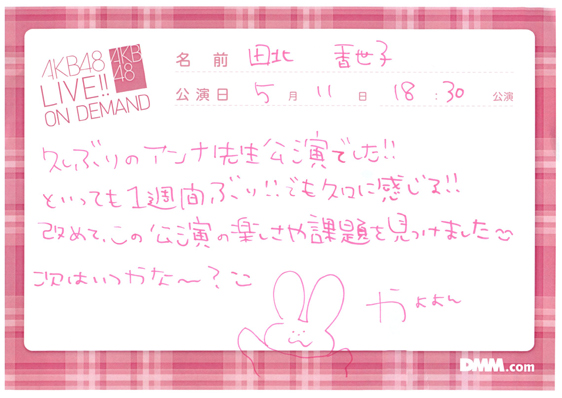 AKB48
LIVE!!
ON DEMAND
AKB
48
名前 田北 香世子
公演日 5月 11日 18:30 公演
久しぶりのアンナ先生公演でした!!
といっても1週間ぶり!!でも久々に感じる!!
改めて、この公演の楽しさや課題を見つけました
次はいつかな〜?
かよよん
DMM.com